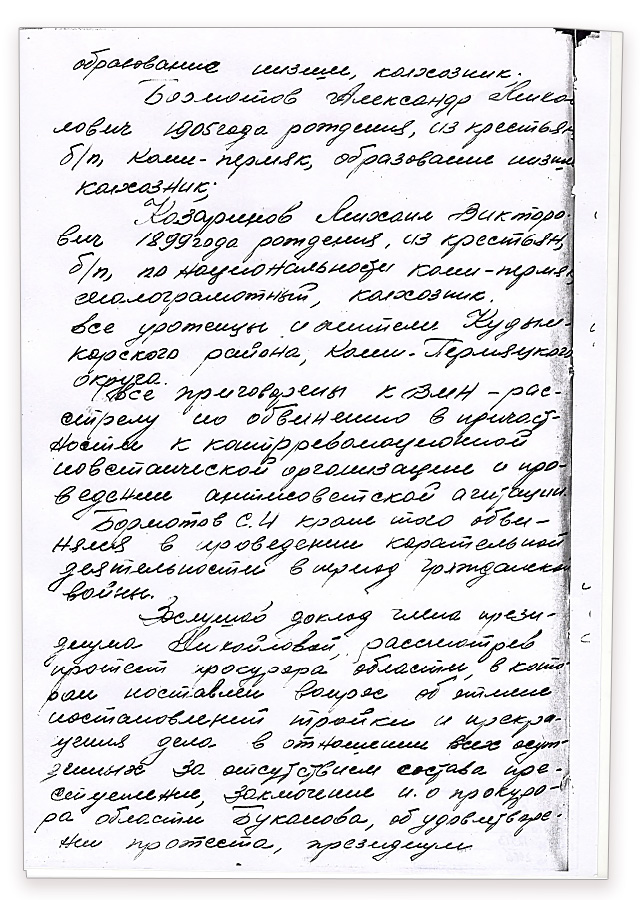 образование низшее, колхозник.
Бормотов Александр Нико-
лович 1905 года рождения, из крестьян,
б/п, коми-пермяк, образование низшее
колхозник;
Казаринов Михаил Викторо-
вич 1899 года рождения, из крестьян,
б/п, по национальности коми-пермяк,
малограмотный, колхозник.
Все уроженцы и жители Кудым-
карского района, Коми-Пермяцкого
округа.
Все приговорены к ВМН – рас-
стрелу по обвинению в причаст-
ности к контрреволюционной
повстанческой организации и про-
ведении антисоветской агитации.
Бормотов С.И кроме того обви-
нялся в проведении карательной
деятельности в период гражданской
войны.
Заслушав доклад члена прези-
диума Михайловой, рассмотрев
протест прокурора области, в кото-
ром поставлен вопрос об отмене
постановлений тройки и прекра-
щения дела в отношении всех осуж-
денных за отсутствием состава пре-
ступления, заключение и.о прокуро-
ра области Буканова, об удовлетворе-
нии протеста, президиум